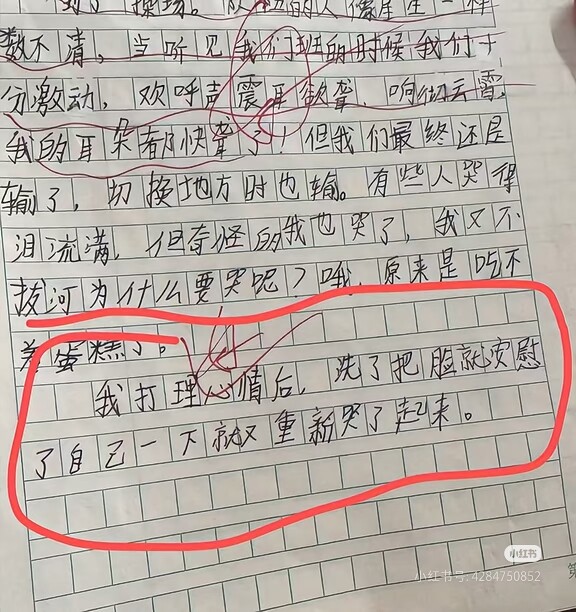 到了操场。
数不清，当听见我们班的时候我们十
分激动，欢呼声震耳欲聋，响彻云霄，
我的耳朵都快聋了！但我们最终还是
输了，切换地方时也输。有些人哭得
泪流满，但奇怪的我也哭了，我又不
拔河为什么要哭呢？哦，原来是吃不
着蛋糕了。
我打理心情后，洗了把脸就安慰
了自己一下就又重新哭了起来。
小红书
小红书号:4284750852
第